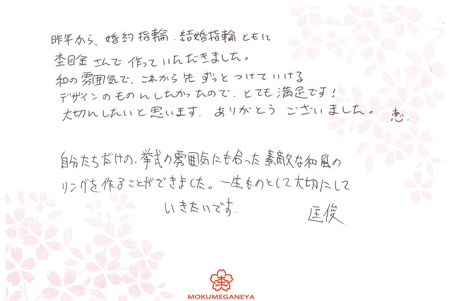 昨年から、婚約指輪、結婚指輪ともに
杢目金さんで作っていただきました。
和の雰囲気で、これから先ずっとつけていける
デザインのものにしたかったので、とても満足です!
大切にしたいと思います。ありがとうございました。 恵
自分たちだけの、挙式の雰囲気にも合った素敵な和風の
リングを作ることができました。一生ものとして大切にして
いきたいです。 匡俊
MOKUMEGANEYA